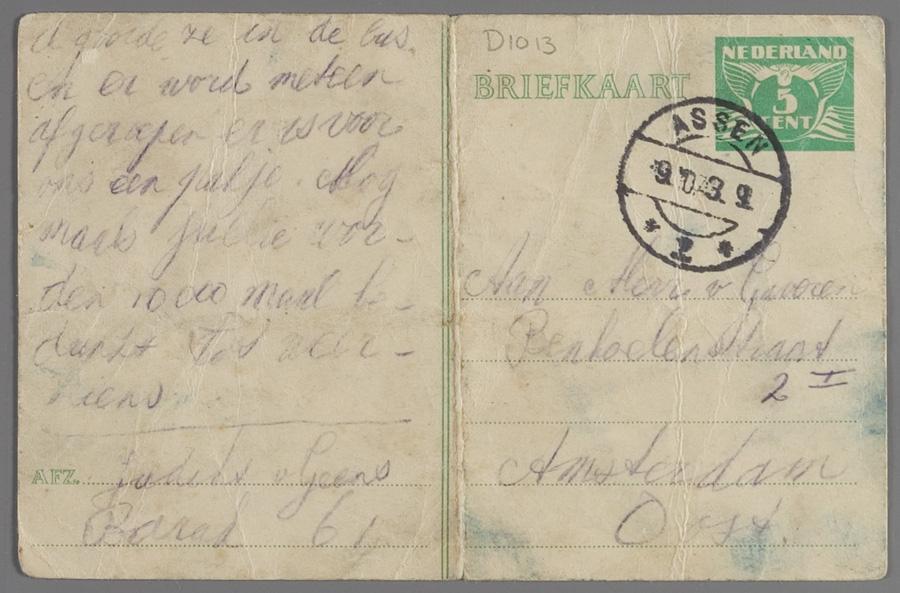 ik gooide ze in de bus.
en er word meteen
afgeroepen er is voor
ons een pakje. Nog
maals jullie wor-
den 10 000 maal be-
dankt Tot weer-
ziens
AFZ. Judith v Geens
Barak 61
D1013
BRIEFKAART
NEDERLAND
5
CENT
ASSEN
2
Aan Mevr v
Benkoelenstraat
2 I
Amsterdam
Oost.